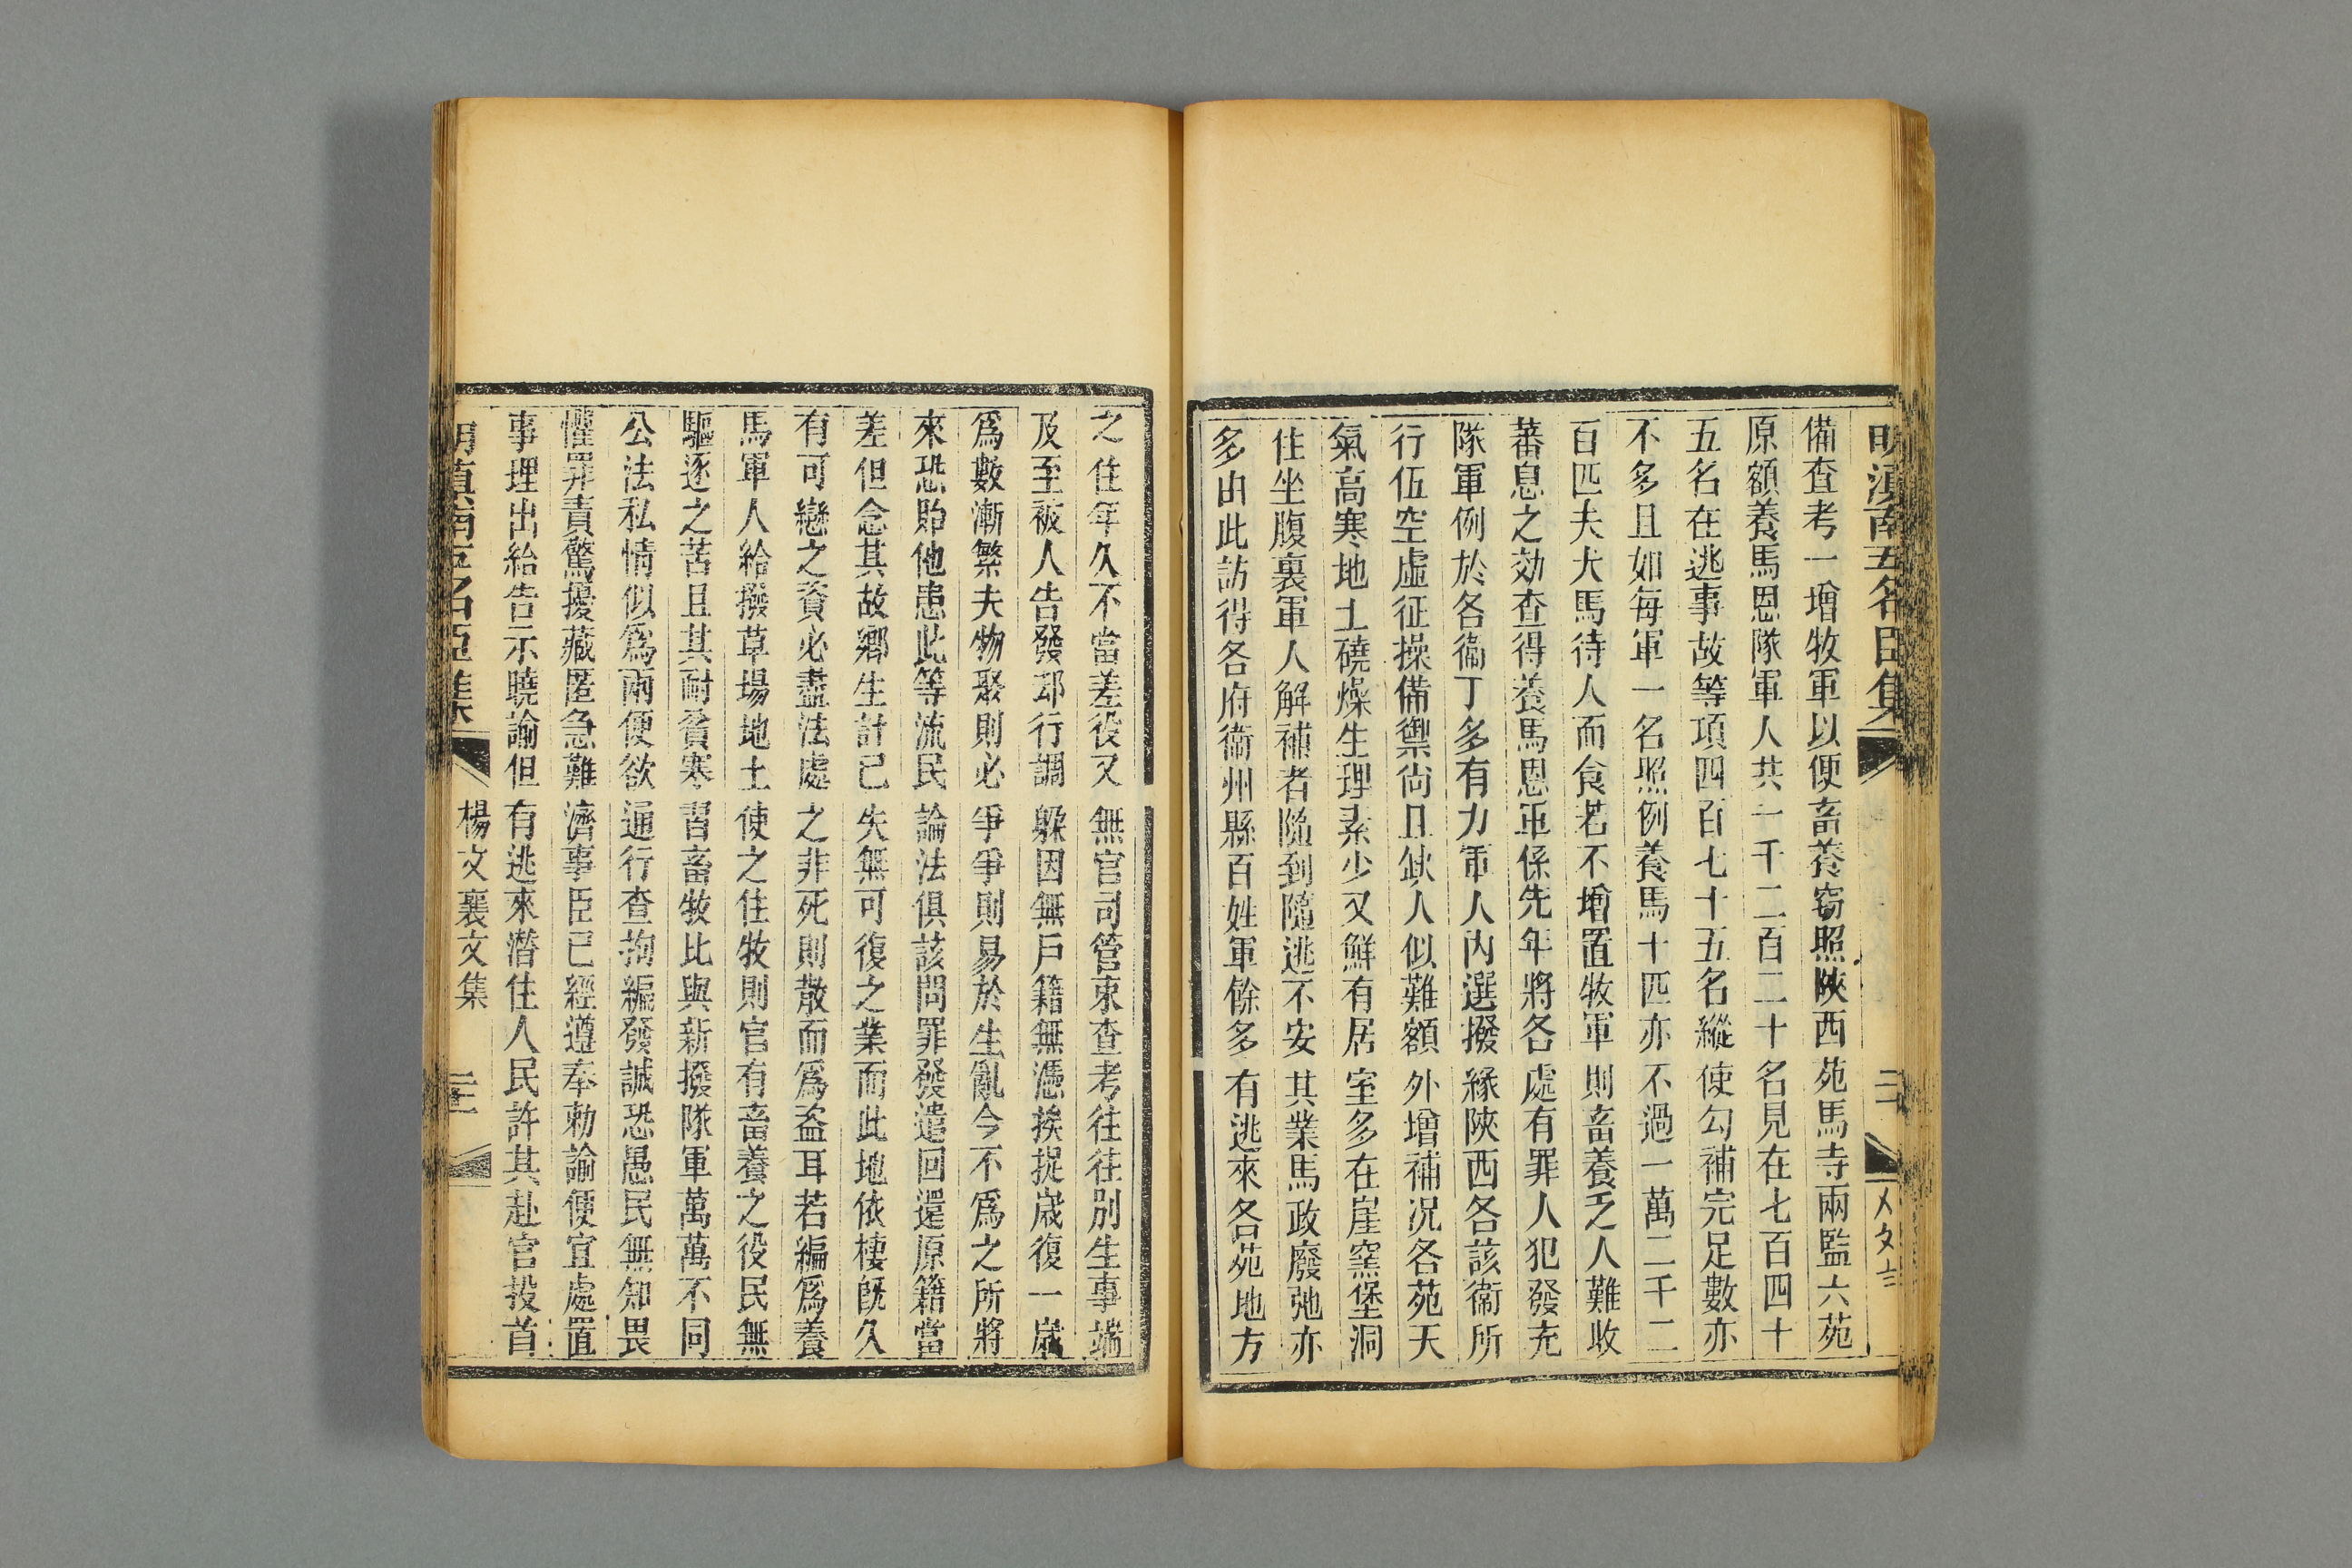 明滇南五名臣集
二
備查考一增牧軍以便畜養竊照陝西苑馬寺兩監六苑
原額養馬恩隊軍人共一千二百二十名見在七百四十
五名在逃事故等項四百七十五名縱使勾補完足數亦
不多且如每軍一名照例養馬十匹亦不過一萬二千二
百匹夫犬馬待人而食若不增置牧軍則畜養乏人難收
蕃息之効查得養馬恩軍係先年將各處有罪人犯發充
隊軍例於各衞丁多有力軍人內選撥緣陝西各該衞所
行伍空虛征操備禦尙且缺人似難額外增補况各苑天
氣高寒地土磽燥生理素少又鮮有居室多在崖窯堡洞
住坐腹裏軍人解補者隨到隨逃不安其業馬政廢弛亦
多由此訪得各府衞州縣百姓軍餘多有逃來各苑地方
之住年久不當差役又無官司管束查考往往別生事端
及至被人告發却行調躲因無戶籍無憑挨捉歲復一歲
爲數漸繁夫物聚則必爭爭則易於生亂今不爲之所將
來恐貽他患此等流民論法俱該問罪發遣回還原籍當
差但念其故鄉生計已失無可復之業而此地依棲旣久
有可戀之資必盡法處之非死則散而爲盜耳若編爲養
馬軍人給撥草場地土使之住牧則官有畜養之役民無
驅逐之苦且其耐貧寒習畜牧比與新撥隊軍萬萬不同
公法私情似爲兩便欲通行查拘編發誠恐愚民無知畏
懼罪責驚擾藏匿急難濟事臣已經遵奉勅諭便宜處置
事理出給告示曉諭但有逃來潛住人民許其赴官投首
明滇南五名臣集
楊文襄文集
三